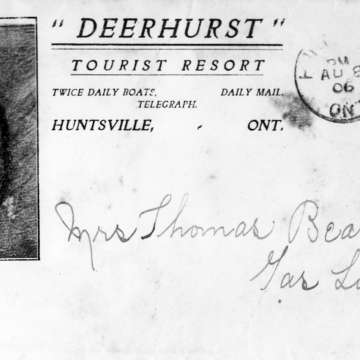 " DEERHURST "
TOURIST RESORT
TWICE DAILY BOATS. DAILY MAIL.
TELEGRAPH.
HUNTSVILLE, ONT.
PM
AU 8
06
ON
Mrs Thomas Bea
Gas